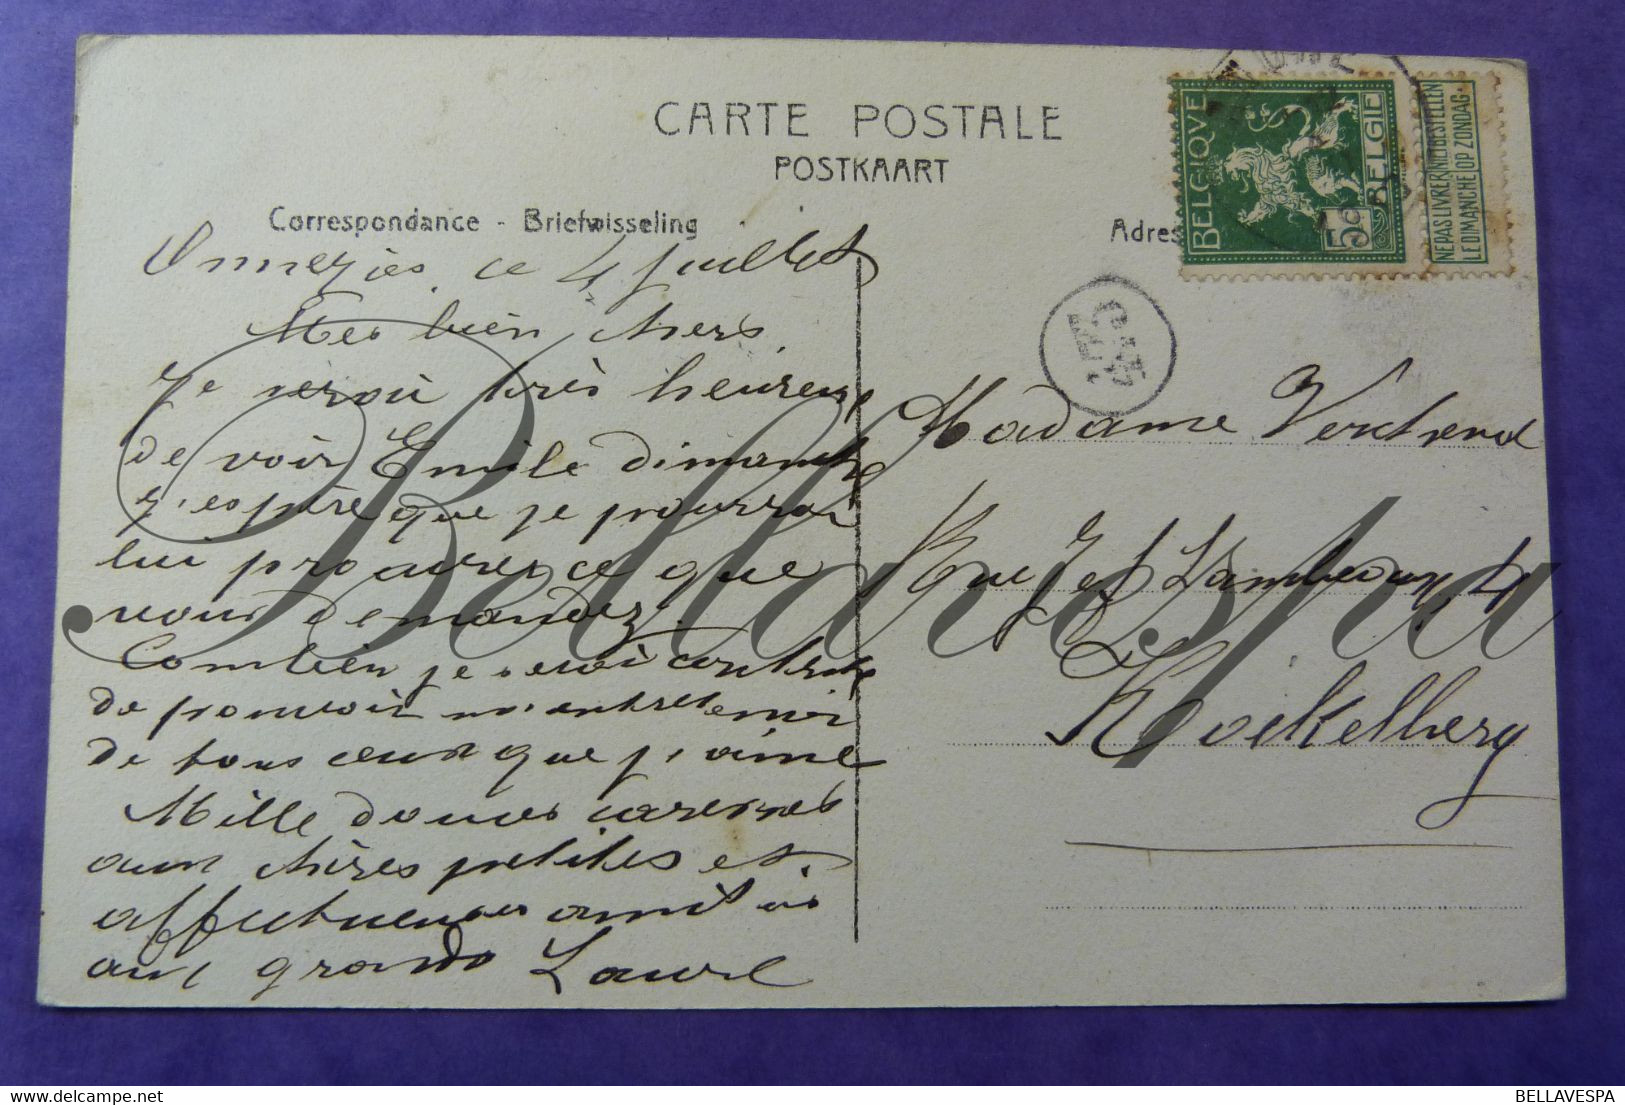 CARTE POSTALE
POSTKAART
Correspondance - Briefwisseling
Adres
BELGIQUE
BELGIE
5c
NE PAS LIVRER LE DIMANCHE
NIET BESTELLEN OP ZONDAG
Onnezies, ce 4 juillet
Mes bien chers,
Je serai très heureuse
de voir Emile dimanche
j'espère que je pourrai
lui procurer ce que
vous demandez.
Combien je serai contente
de pouvoir m'entretenir
de tous ceux que j'aime
Mille douces caresses
aux chères petites et
affectueuses amitiés
aux grands Laure
Madame Verdhend
Rue Jef Lambeaux, 4
Koekelberg
Bellavespa
BELLAVESPA